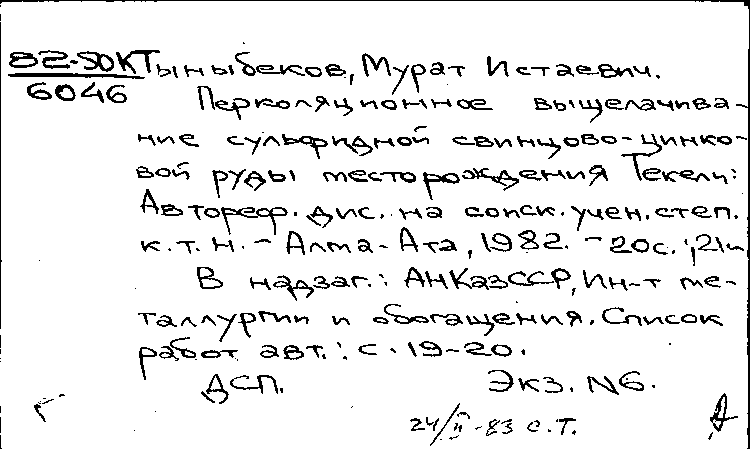 82-5ДКТ Тыныбеков, Мурат Истаевич.
6046
Перколяционное выщелачива-
ние сульфидной свинцово-цинко-
вой руды месторождения Текели:
Автореф. дис. на соиск. учен. степ.
к.т.н. - Алма-Ата, 1982. - 20с.; 21
В надзаг.: АН КазССР, Ин-т ме-
таллургии и обогащения. Список
работ авт.: с. 19-20.
ДСП. Экз. N6.
24/II-83 с.т.